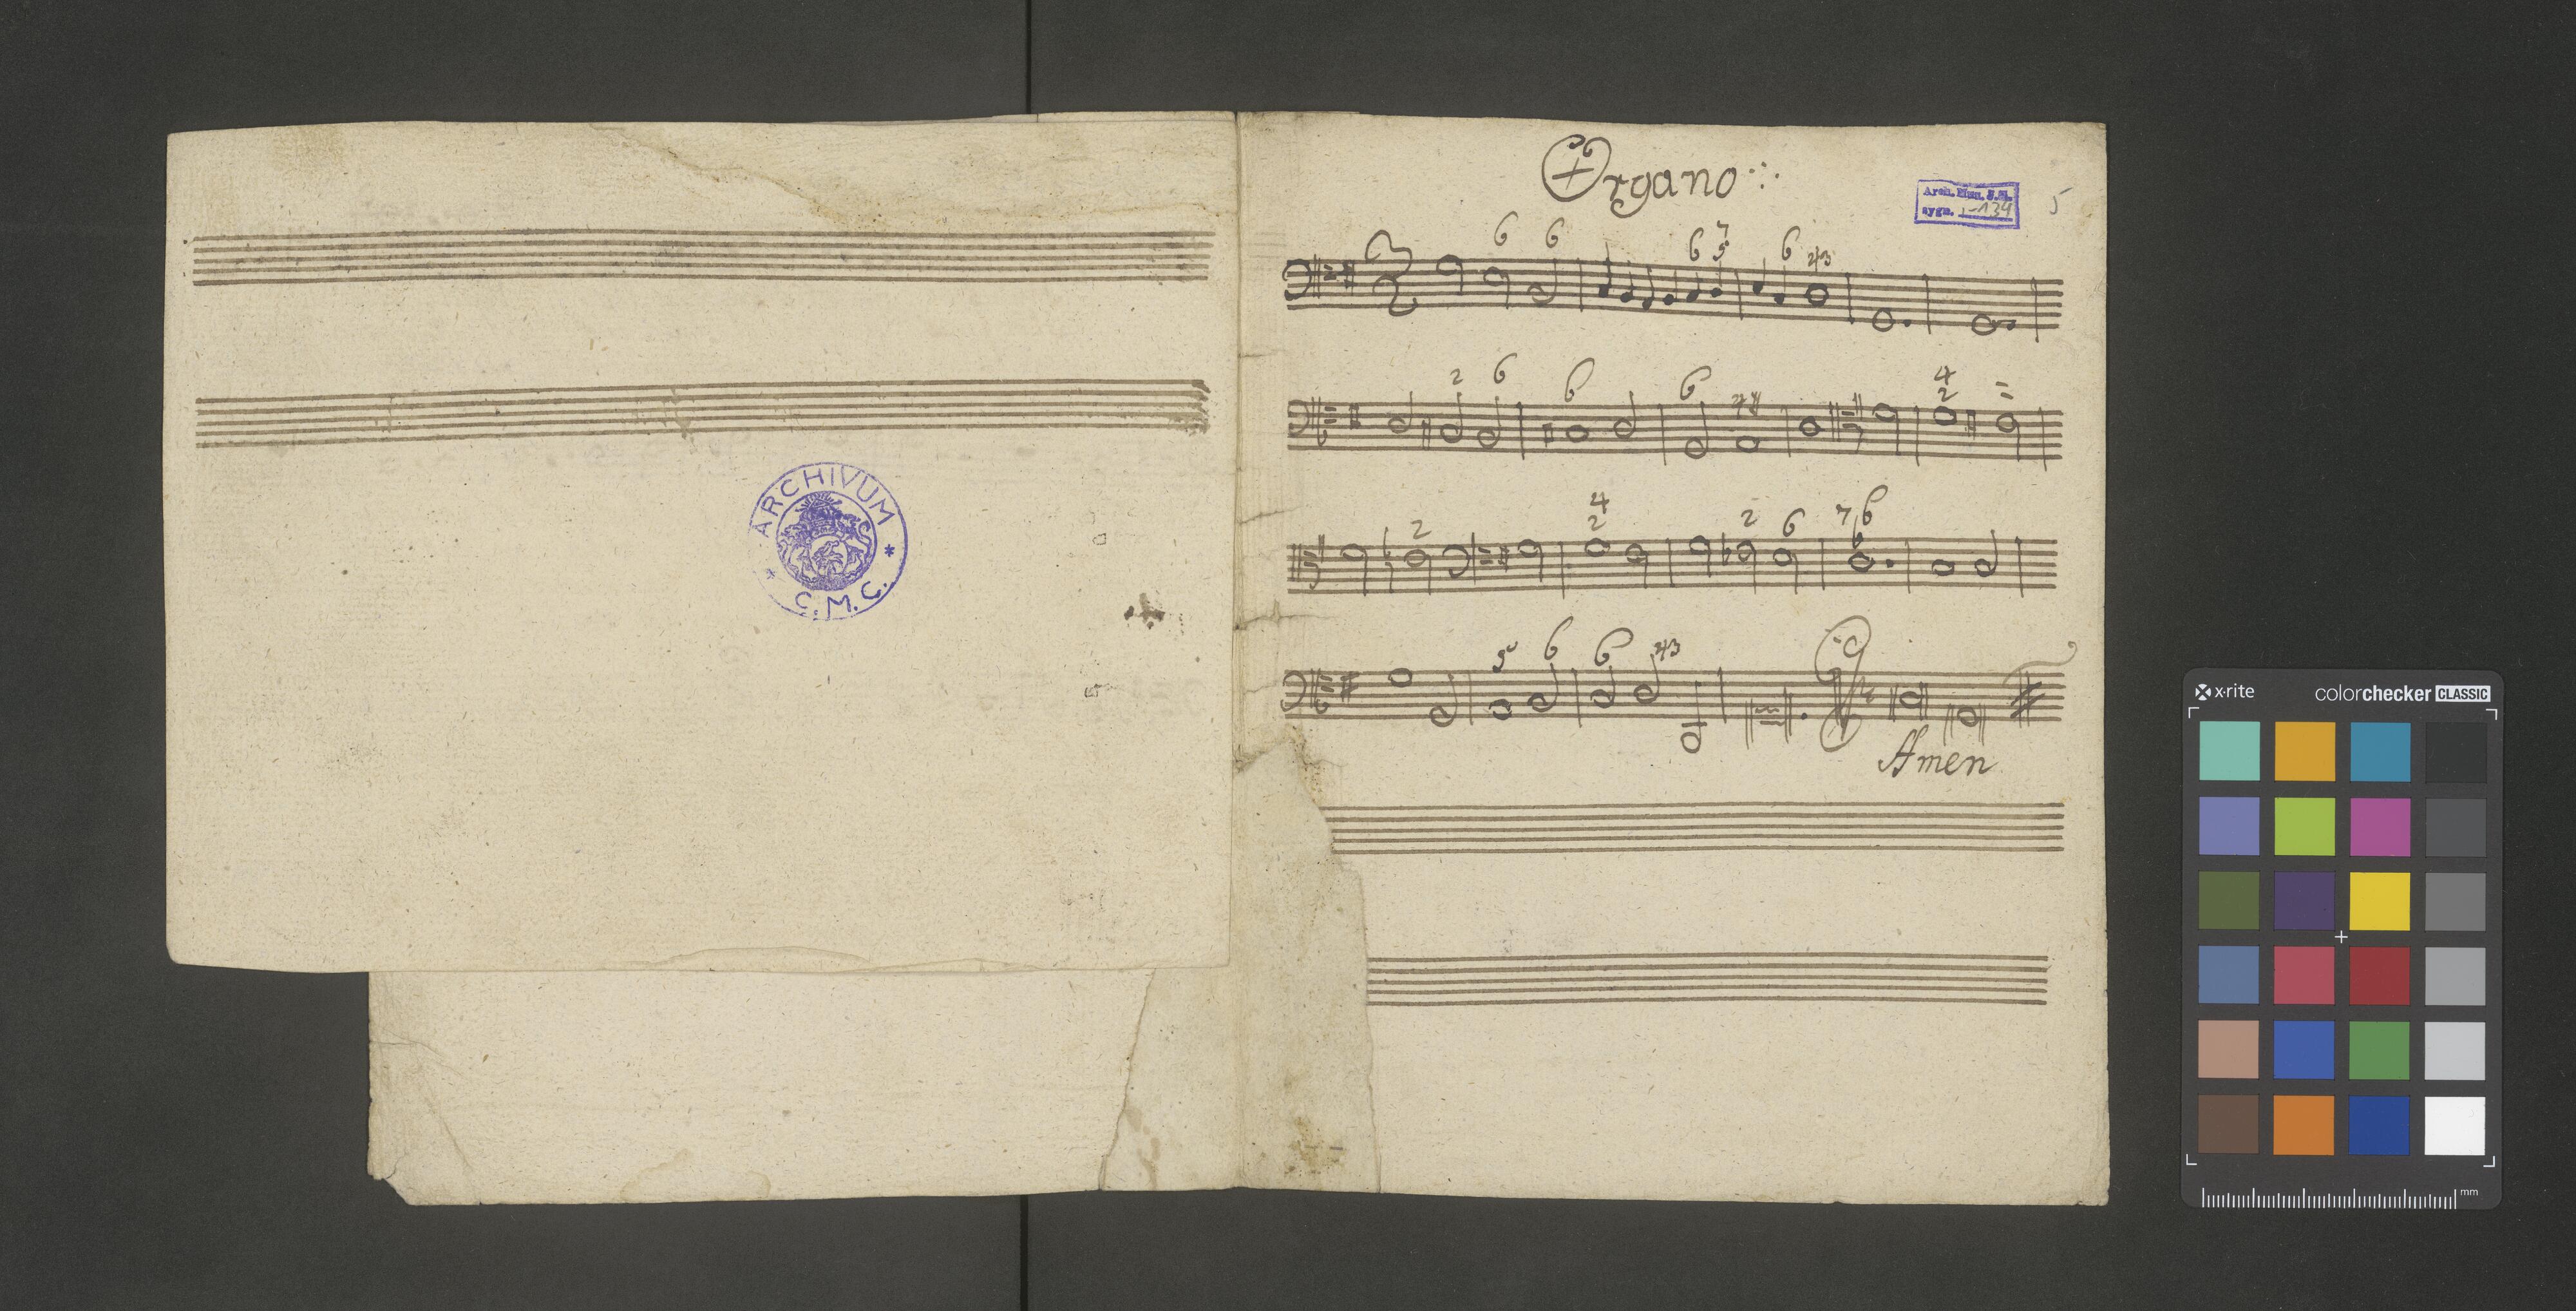 ARCHIVUM
* C.M.C. *
Organo
Arch. Mus. S.M.
sygn. I-134
5
6 6 6 7 5 6 43
2 6 6 6
4 2
2 4 2 2 6 7 6
5 6 6 43
Amen
x·rite
colorchecker CLASSIC
mm